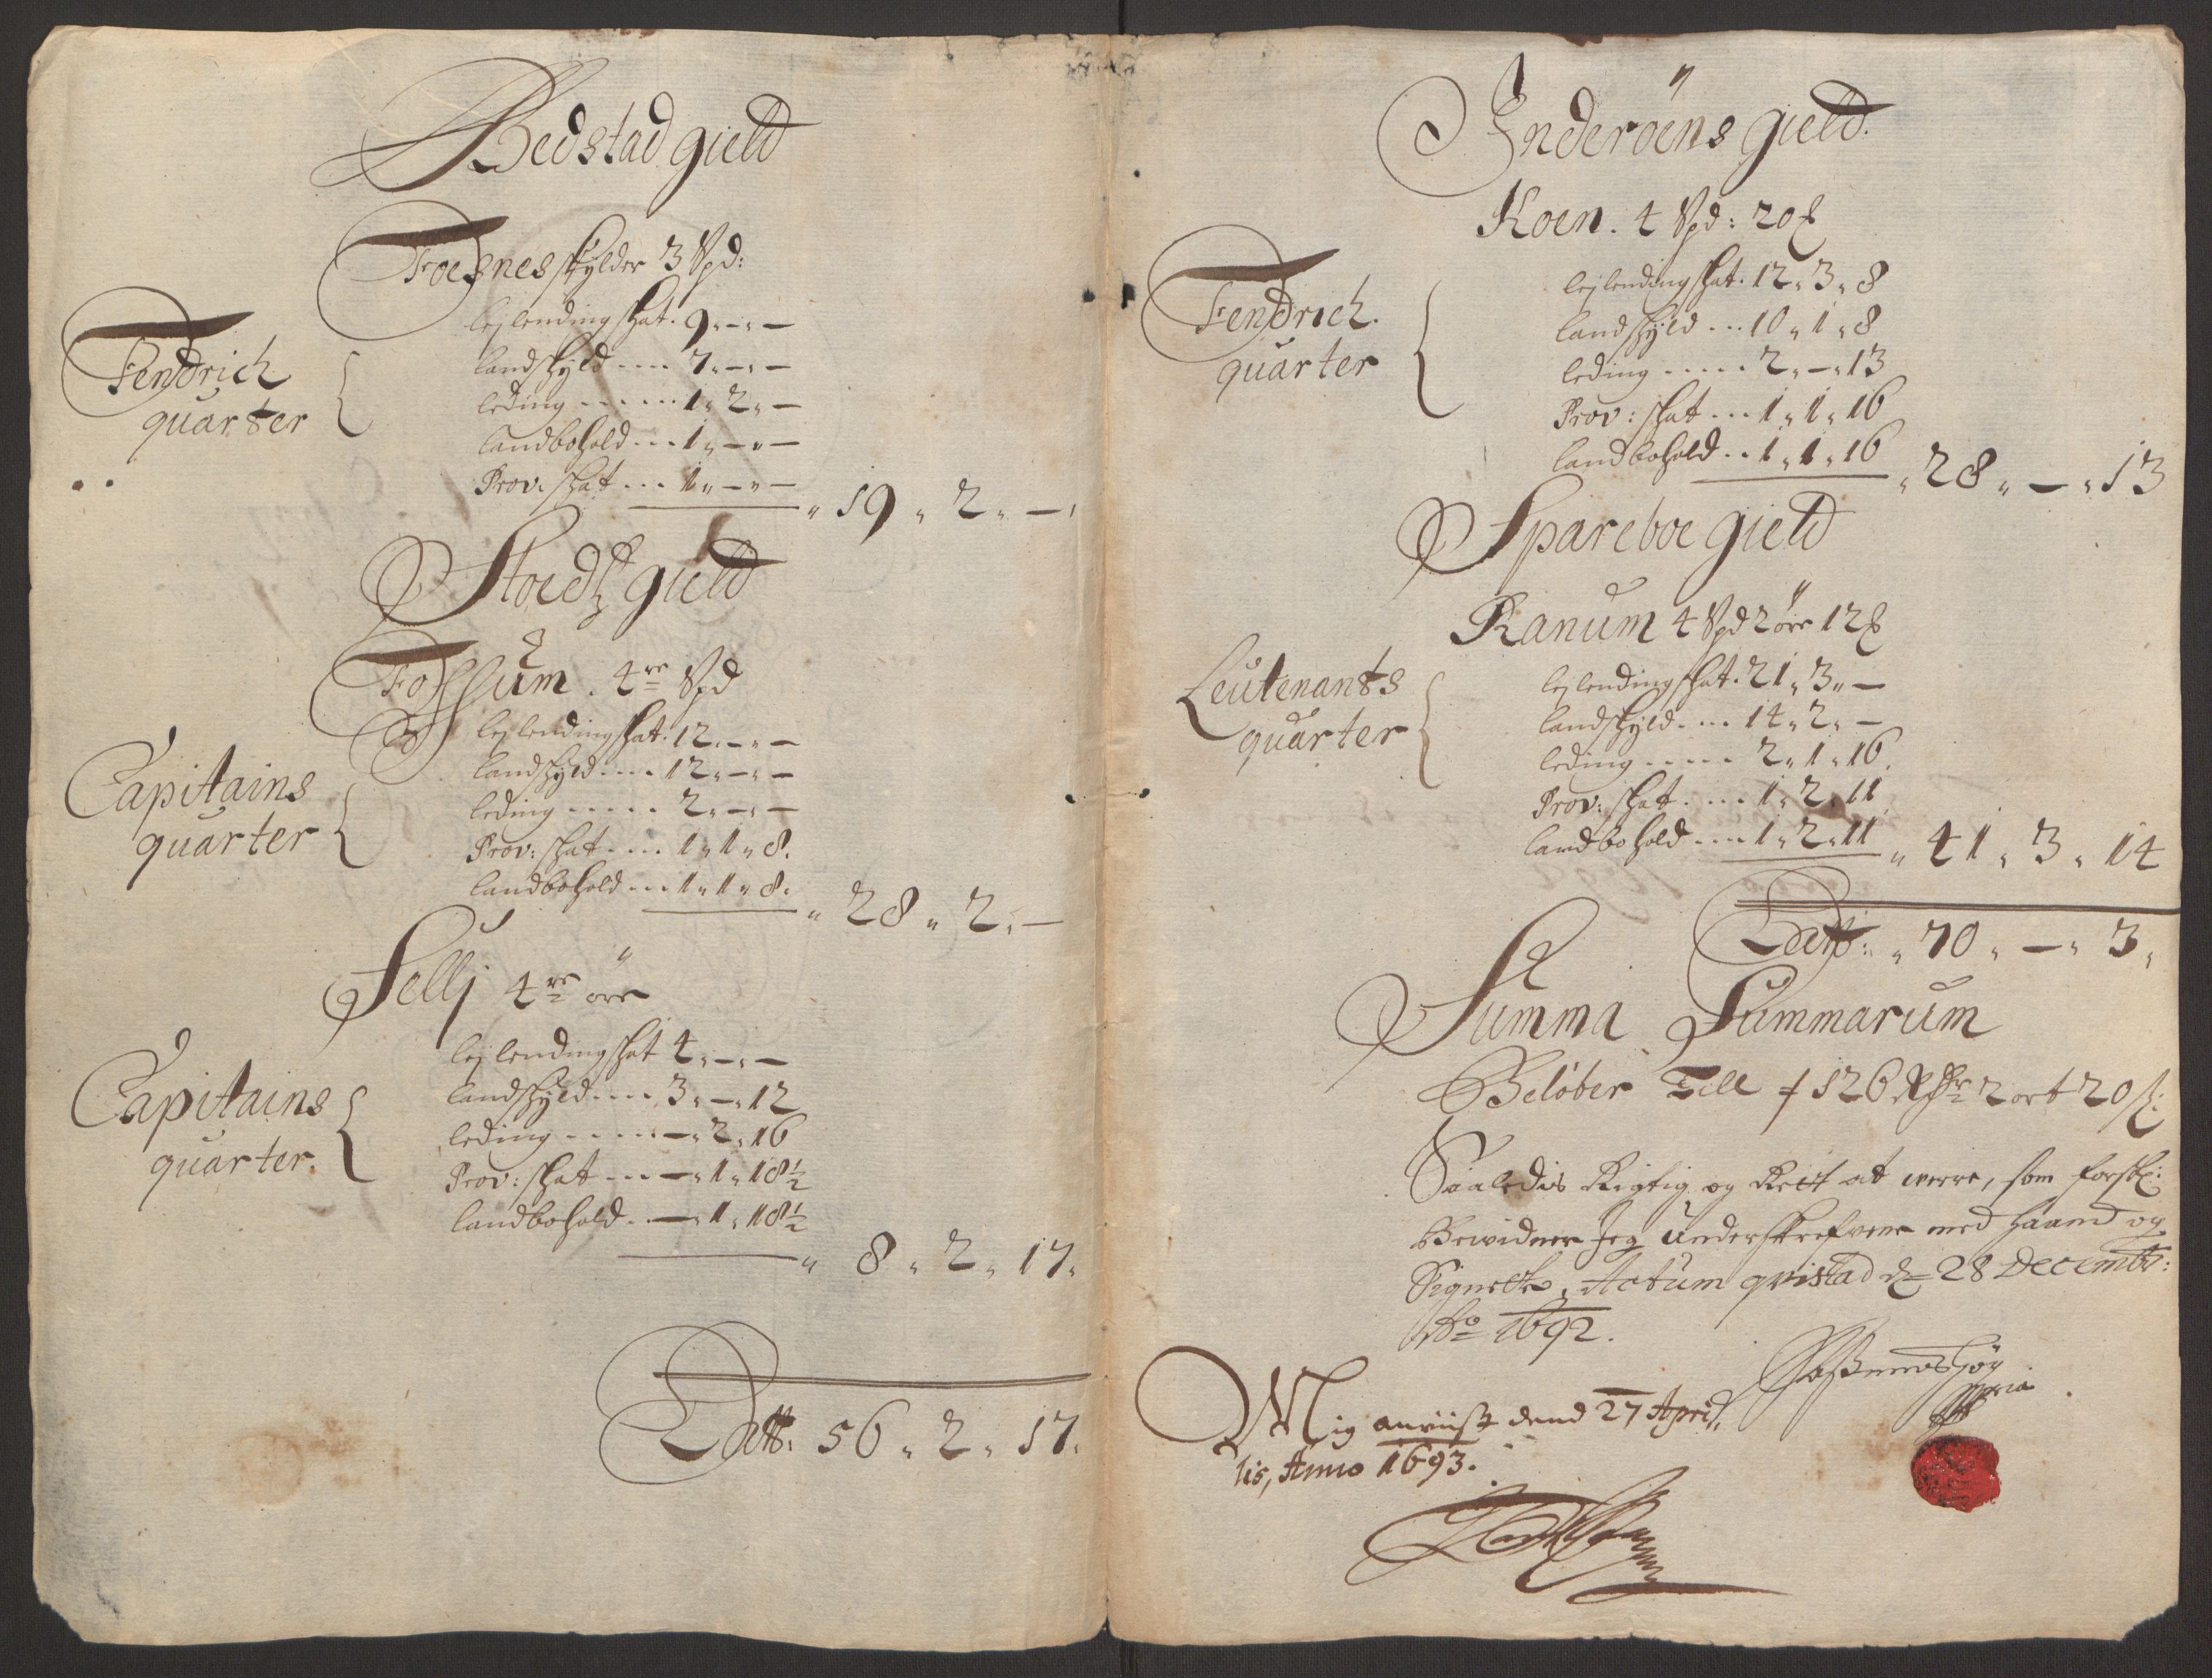 Bedstad gield
Foesnes skylder 3 Spd:
Fendrich
quarter
lejlending skat. 9 " – " –
landskyld .... 7 " – " –
leding ...... 1 " 2 " –
landbohold ... 1 " – " –
Prov: skat ... 1 " – " –
" 19 " 2 " – "
Stoedtz gield
Fossum . 4re Spd
Capitains
quarter
lejlending skat. 12 " – " –
landskyld .... 12 " – " –
leding ..... 2 " – " –
Prov: skat .... 1 " 1 " 8.
landbohold ... 1 " 1 " 8.
" 28 " 2 " –
Sellj 4re øre
Capitains
quarter.
lejlending skat 4 " – " –
landskyld .... 3 " – " 12
leding ..... – " 2 " 16
Prov: skat ... – " 1 " 18½
landbohold . – " 1 " 18½
" 8 " 2 " 17 "
Latt: 56 " 2 " 17 "
Inderöens gield.
Koen. 4 Spd: 20 
Fendrich.
quarter
lejlending skat. 12 " 3 " 8
landskyld ... 10 " 1 " 8
leding ..... 2 " – " 13
Prov: skat ... 1 " 1 " 16
landbohold .. 1 " 1 " 16
" 28 " – " 13
Spareboe gield
Ranum 4 Spd 2 øre 12 
Leutenants
quarter
lejlending skat. 21 " 3 " –
landskyld .... 14 " 2 " –
leding ..... 2 " 1 " 16.
Prov: skat .... 1 " 2 " 11
landbohold .... 1 " 2 " 11
" 41 " 3 " 14
Latt: " 70 " – " 3 "
Summa Summarum
Beløber Till 126 Rdr 2 ort 20 s:
Saaledis Rigtig og Rett at werre, som forskr:
Bewidner Jeg Underskrefvene med Haand og
Signette, Actum qvistad d= 28 Decembr:
Ao 1692.
Mig anviist dend 27 Apri-
lis, Anno 1693.